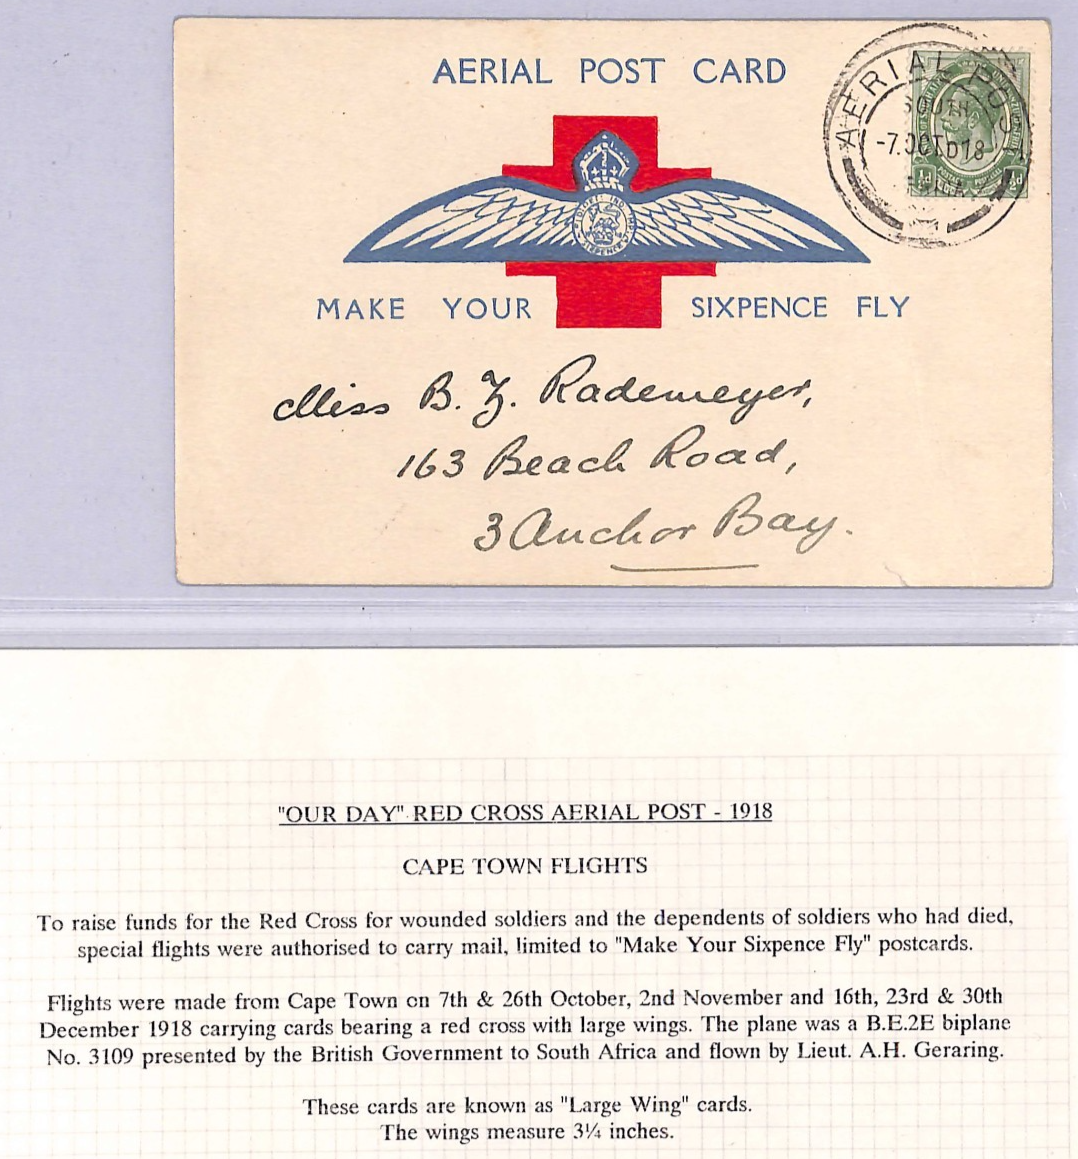 AERIAL POST CARD
AERIAL POST
SOUTH
-7.OCT.18
½d
MAKE YOUR SIXPENCE FLY
Miss B. Z. Rademeyer,
163 Beach Road,
3 Anchor Bay.
"OUR DAY" RED CROSS AERIAL POST - 1918
CAPE TOWN FLIGHTS
To raise funds for the Red Cross for wounded soldiers and the dependents of soldiers who had died,
special flights were authorised to carry mail, limited to "Make Your Sixpence Fly" postcards.
Flights were made from Cape Town on 7th & 26th October, 2nd November and 16th, 23rd & 30th
December 1918 carrying cards bearing a red cross with large wings. The plane was a B.E.2E biplane
No. 3109 presented by the British Government to South Africa and flown by Lieut. A.H. Geraring.
These cards are known as "Large Wing" cards.
The wings measure 3¼ inches.